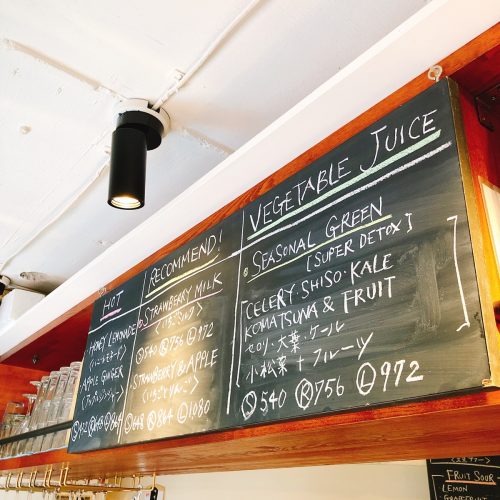 HOT
HONEY LEMONADE
<ハニーレモネード>
APPLE GINGER
<アップルジンジャー>
RECOMMEND!
STRAWBERRY MILK
<いちごミルク>
Ⓢ540 Ⓡ756 Ⓛ972
STRAWBERRY & APPLE
<いちごとりんご>
Ⓢ648 Ⓡ864 Ⓛ1080
VEGETABLE JUICE
SEASONAL GREEN
[SUPER DETOX]
CELERY・SHISO・KALE
KOMATSUNA & FRUIT
セロリ・大葉・ケール
小松菜 + フルーツ
Ⓢ540 Ⓡ756 Ⓛ972
FRUIT SOUR
LEMON
GRAPEFRUIT